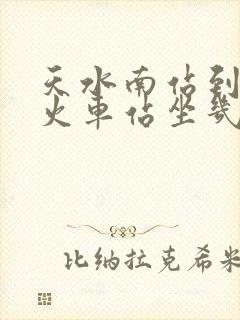 天水南佔到
火車佔坐幾
比纳拉克希米